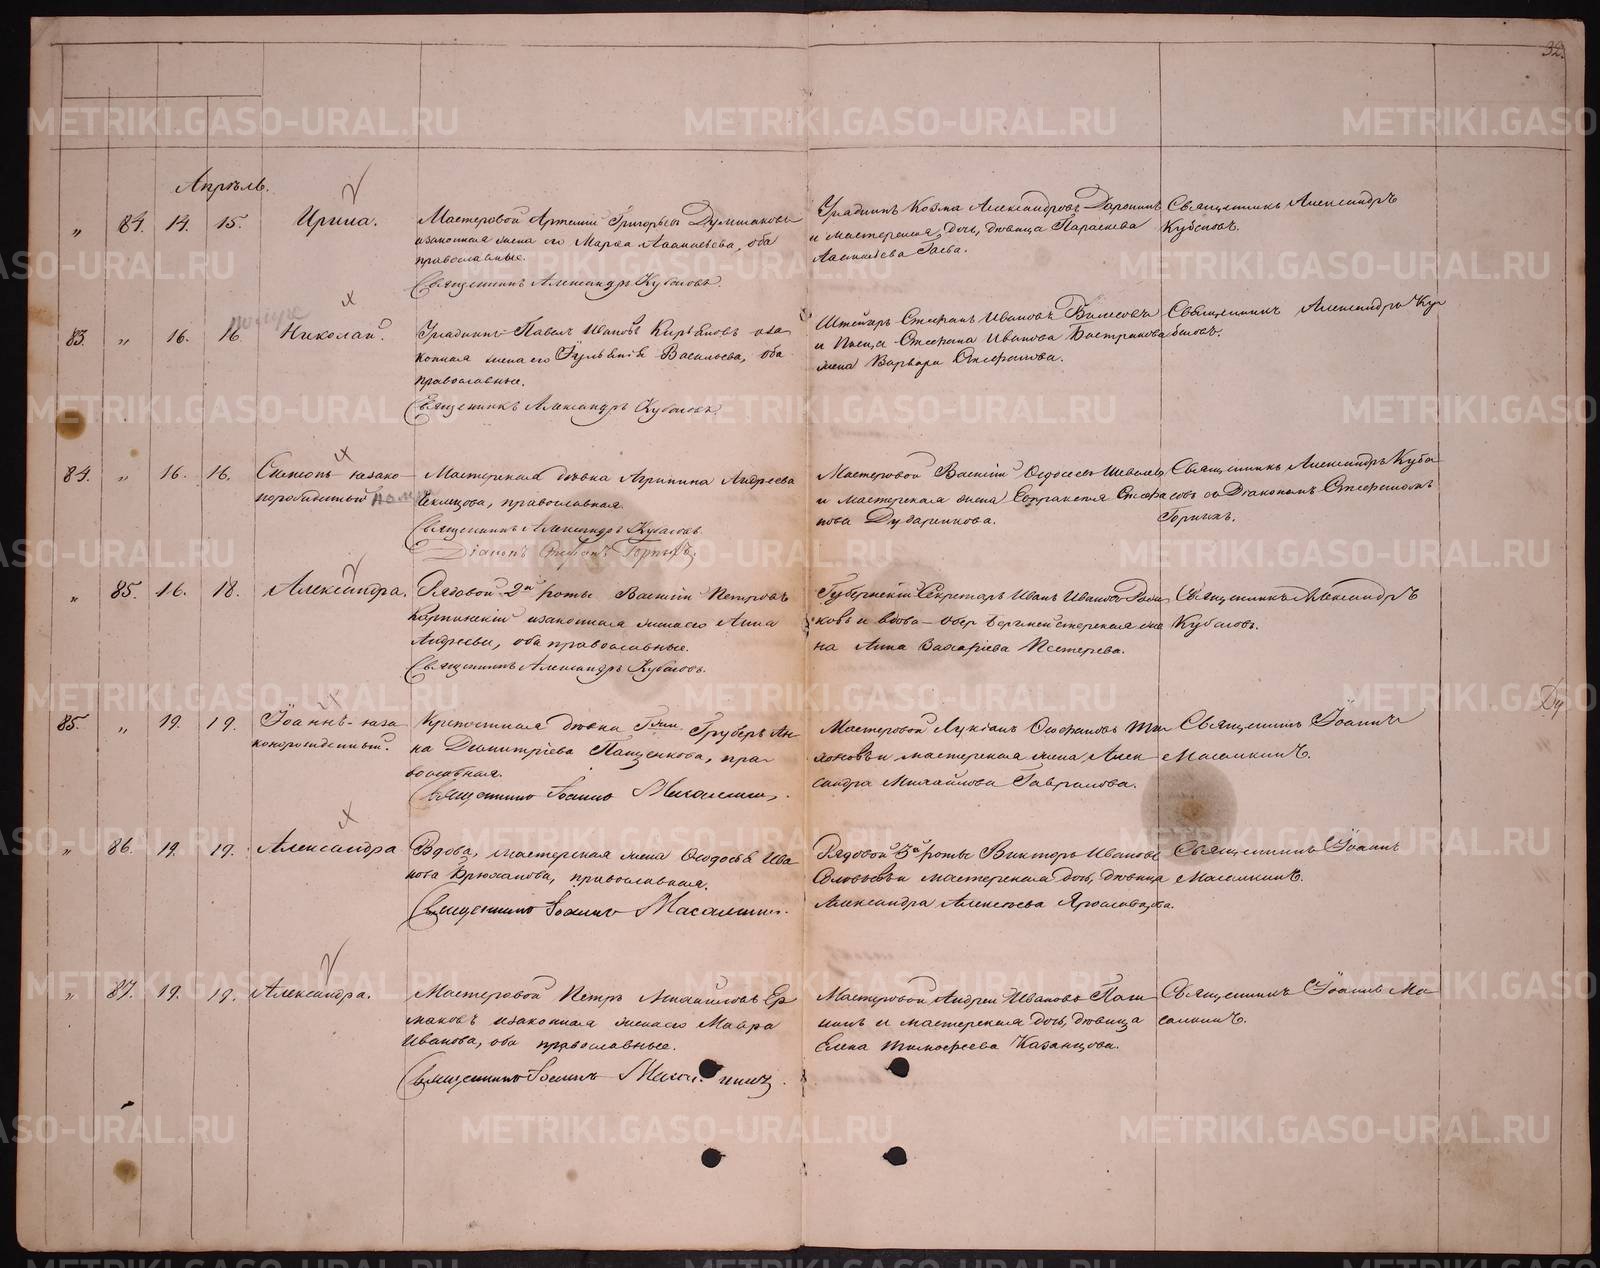 32.
Апрѣль.
" 84. 14. 15. Ирина.
Мастеровой Артемій Григорьевъ
и законная жена его Марѳа Аѳанасьева, оба
православные.
Священникъ Александръ Кубасовъ.
Урядникъ Козма Александровъ
и мастерская дочь, дѣвица Параскева
Васильева Гаева.
Священникъ Александръ
Кубасовъ.
83. " 16. 16. Николай.
померъ
Урядникъ Павелъ Ивановъ Кирьяновъ и за-
конная жена его Іульянія Васильева, оба
православные.
Священникъ Александръ Кубасовъ.
Штейгеръ Стефанъ Ивановъ
и Стефана Иванова
жена Варвара Стефанова.
Священникъ Александръ Ку-
басовъ.
84. " 16. 16. Симеонъ - незако-
норожденный
Мастерская дѣвка Агрипина Андреева
православная.
Священникъ Александръ Кубасовъ.
Діаконъ Стефанъ Горныхъ.
Мастеровой Василій Ѳедосѣевъ Шевелевъ
и мастерская жена Евпраксія Стефа-
нова Дударенкова.
Священникъ Александръ Куба-
совъ съ Діакономъ Стефаномъ
Горныхъ.
" 85. 16. 18. Александра.
Рядовой 2й роты Василій Петровъ
Карпинскій и законная жена его Анна
Андреева, оба православные.
Священникъ Александръ Кубасовъ.
Губернскій Секретарь Иванъ Ивановъ
ковъ и вдова - Оберъ Бергмейстерская же-
на Анна Захаріева Пестерева.
Священникъ Александръ
Кубасовъ.
85. " 19. 19. Іоаннъ - неза-
коннорожденный.
Крѣпостная дѣвка Гжи Груберъ Ан-
на Димитріева Пащенкова, пра-
вославная.
Священникъ Іоаннъ Масалкинъ.
Мастеровой Лукіанъ Ѳеофановъ Ти-
хоновъ и мастерская жена Алек-
сандра Михайлова Гаврилова.
Священникъ Іоаннъ
Масалкинъ.
" 86. 19. 19. Александра
Вдова, мастерская жена Ѳеодосія Ива-
нова Брюханова, православная.
Священникъ Іоаннъ Масалкинъ.
Рядовой 3й роты Викторъ Ивановъ
Соловьевъ и мастерская дочь, дѣвица
Александра Алексѣева Ярославцова.
Священникъ Іоаннъ
Масалкинъ.
" 87. 19. 19. Александра.
Мастеровой Петръ Михайловъ Ер-
маковъ и законная жена его Мавра
Иванова, оба православные.
Священникъ Іоаннъ Масалкинъ.
Мастеровой Андрей Ивановъ Паш-
нинъ и мастерская дочь, дѣвица
Елена Тимоѳеева Казанцова.
Священникъ Іоаннъ Ма-
салкинъ.
METRIKI.GASO-URAL.RU